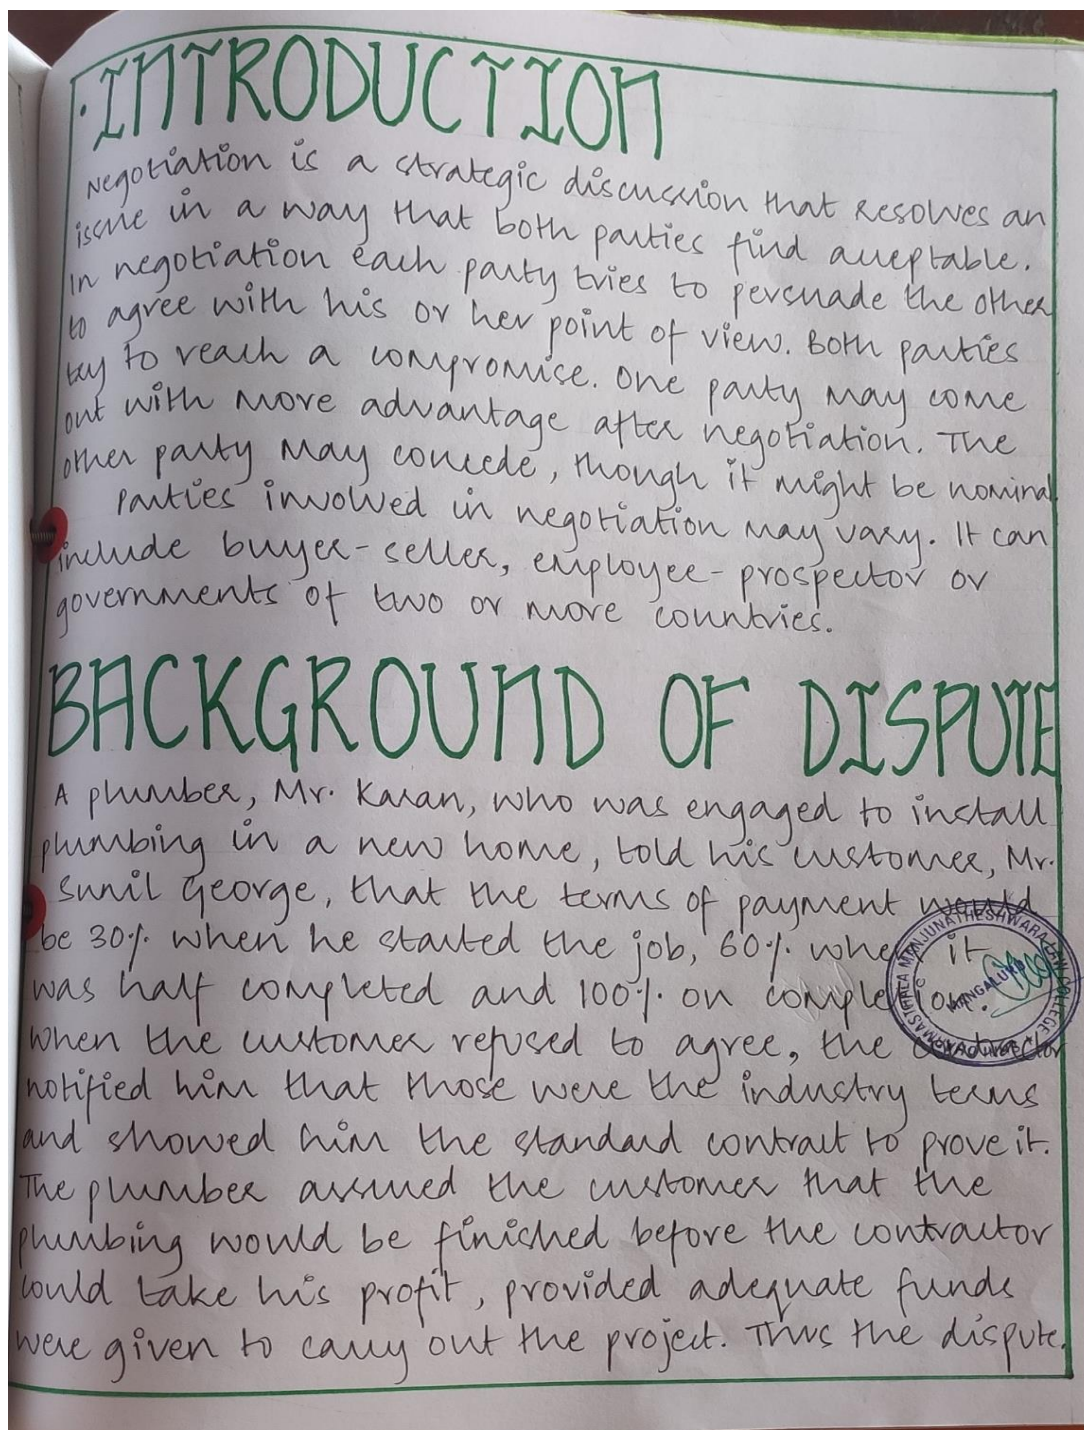 INTRODUCTION
Negotiation is a strategic discussion that resolves an
issue in a way that both parties find acceptable.
In negotiation each party tries to persuade the other
to agree with his or her point of view. Both parties
try to reach a compromise. One party may come
out with more advantage after negotiation. The
other party may concede, though it might be nominal.
Parties involved in negotiation may vary. It can
include buyer-seller, employee-prospector or
governments of two or more countries.
BACKGROUND OF DISPUTE
A plumber, Mr. Karan, who was engaged to install
plumbing in a new home, told his customer, Mr.
Sunil George, that the terms of payment would
be 30% when he started the job, 60% when it
was half completed and 100% on completion.
When the customer refused to agree, the contractor
notified him that those were the industry terms
and showed him the standard contract to prove it.
The plumber assured the customer that the
plumbing would be finished before the contractor
could take his profit, provided adequate funds
were given to carry out the project. Thus the dispute.
MANJUNATHESHWARA LAW COLLEGE
MANGALURU